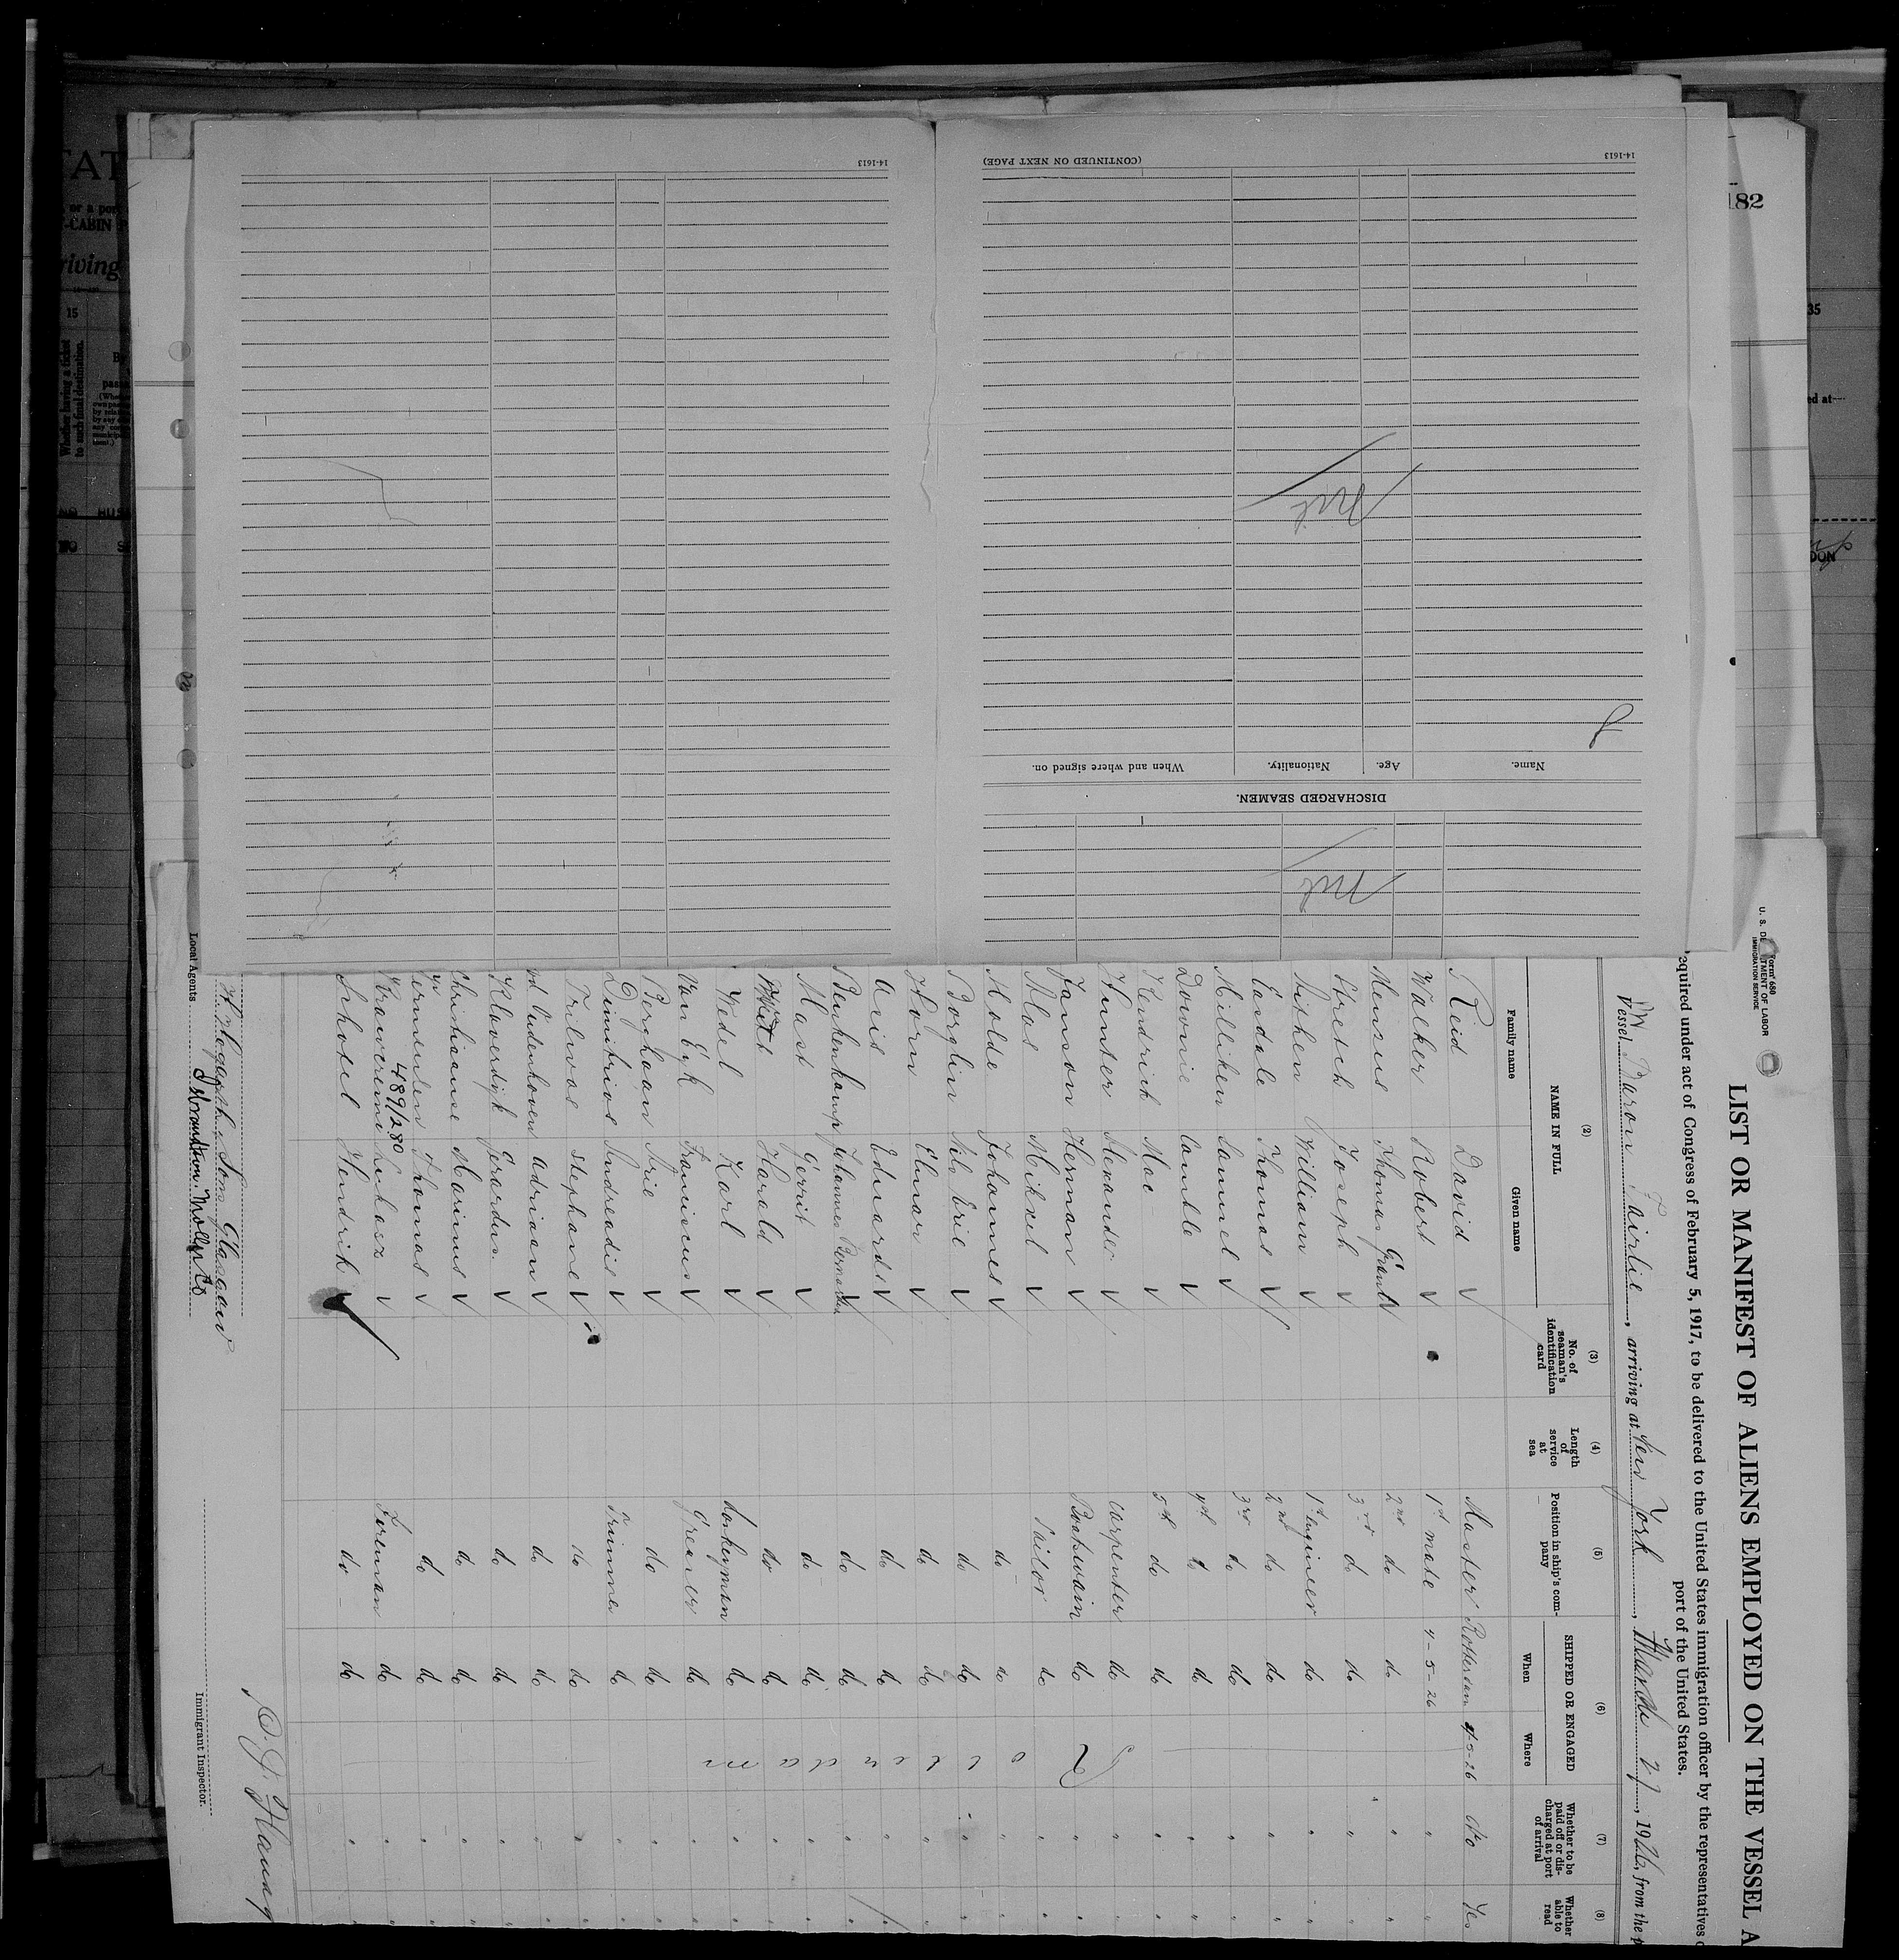 14-1613
(CONTINUED ON NEXT PAGE)
14-1613
Nil
Name.
Age.
Nationality.
When and where signed on.
DISCHARGED SEAMEN.
Nil
182
35
ed at
DON
TAT
or a por
-CABIN
riving
15
Whether having a ticket to such final destination.
By
U. S. DE TMENT OF LABOR
IMMIGRATION SERVICE
Form 680
LIST OR MANIFEST OF ALIENS EMPLOYED ON THE VESSEL A
equired under act of Congress of February 5, 1917, to be delivered to the United States immigration officer by the representatives o
port of the United States.
Vessel Baron Fairlie, arriving at New York, March 27, 1926, from the p
(2) (3) (4) (5) (6) (7) (8)
NAME IN FULL
Family name Given name
No. of seaman's identification card
Length of service at sea
Position in ship's company
SHIPPED OR ENGAGED
When Where
Whether to be paid off or discharged at port of arrival
Whether able to read
Reid David Master Rotterdam 4-5-26 No Yes
Walker Robert 1st mate 4-5-26
Menzies Thomas Grant 2nd do do
Stretch Joseph 3rd do do
Aishen William 1st Engineer do
Easdale Thomas 2nd do do
Milliken Samuel 3rd do do
Downie Camble 4th do do
Kendrick Mac 5th do do
Hunter Alexander Carpenter do
Janson Herman Boatswain do
Mas Mikael Sailor do
Molde Johannes do do
Borglin Nils Eric do do
Horn Elmar do do
Acis Eduards do do
Benkenkamp Johannes do do
Mast Gerrit do do
Witt Harald do do
Wedel Karl donkeyman do
Van Eyk Franciscus Greaser do
Berghaan Arie do do
Dimitrios Andreadis Trimmer do
Trilivas Stephane do do
vd Oudenhoven Adriaan do do
Klaverdijk Gerardus do do
Christianse Marinus do do
Vermeulen Thomas do do
489/280
Fireman do
Scholsel Hendrik do do
Rotterdam
H. Hogarth & Sons Glasgow
Local Agents
Immigrant Inspector.